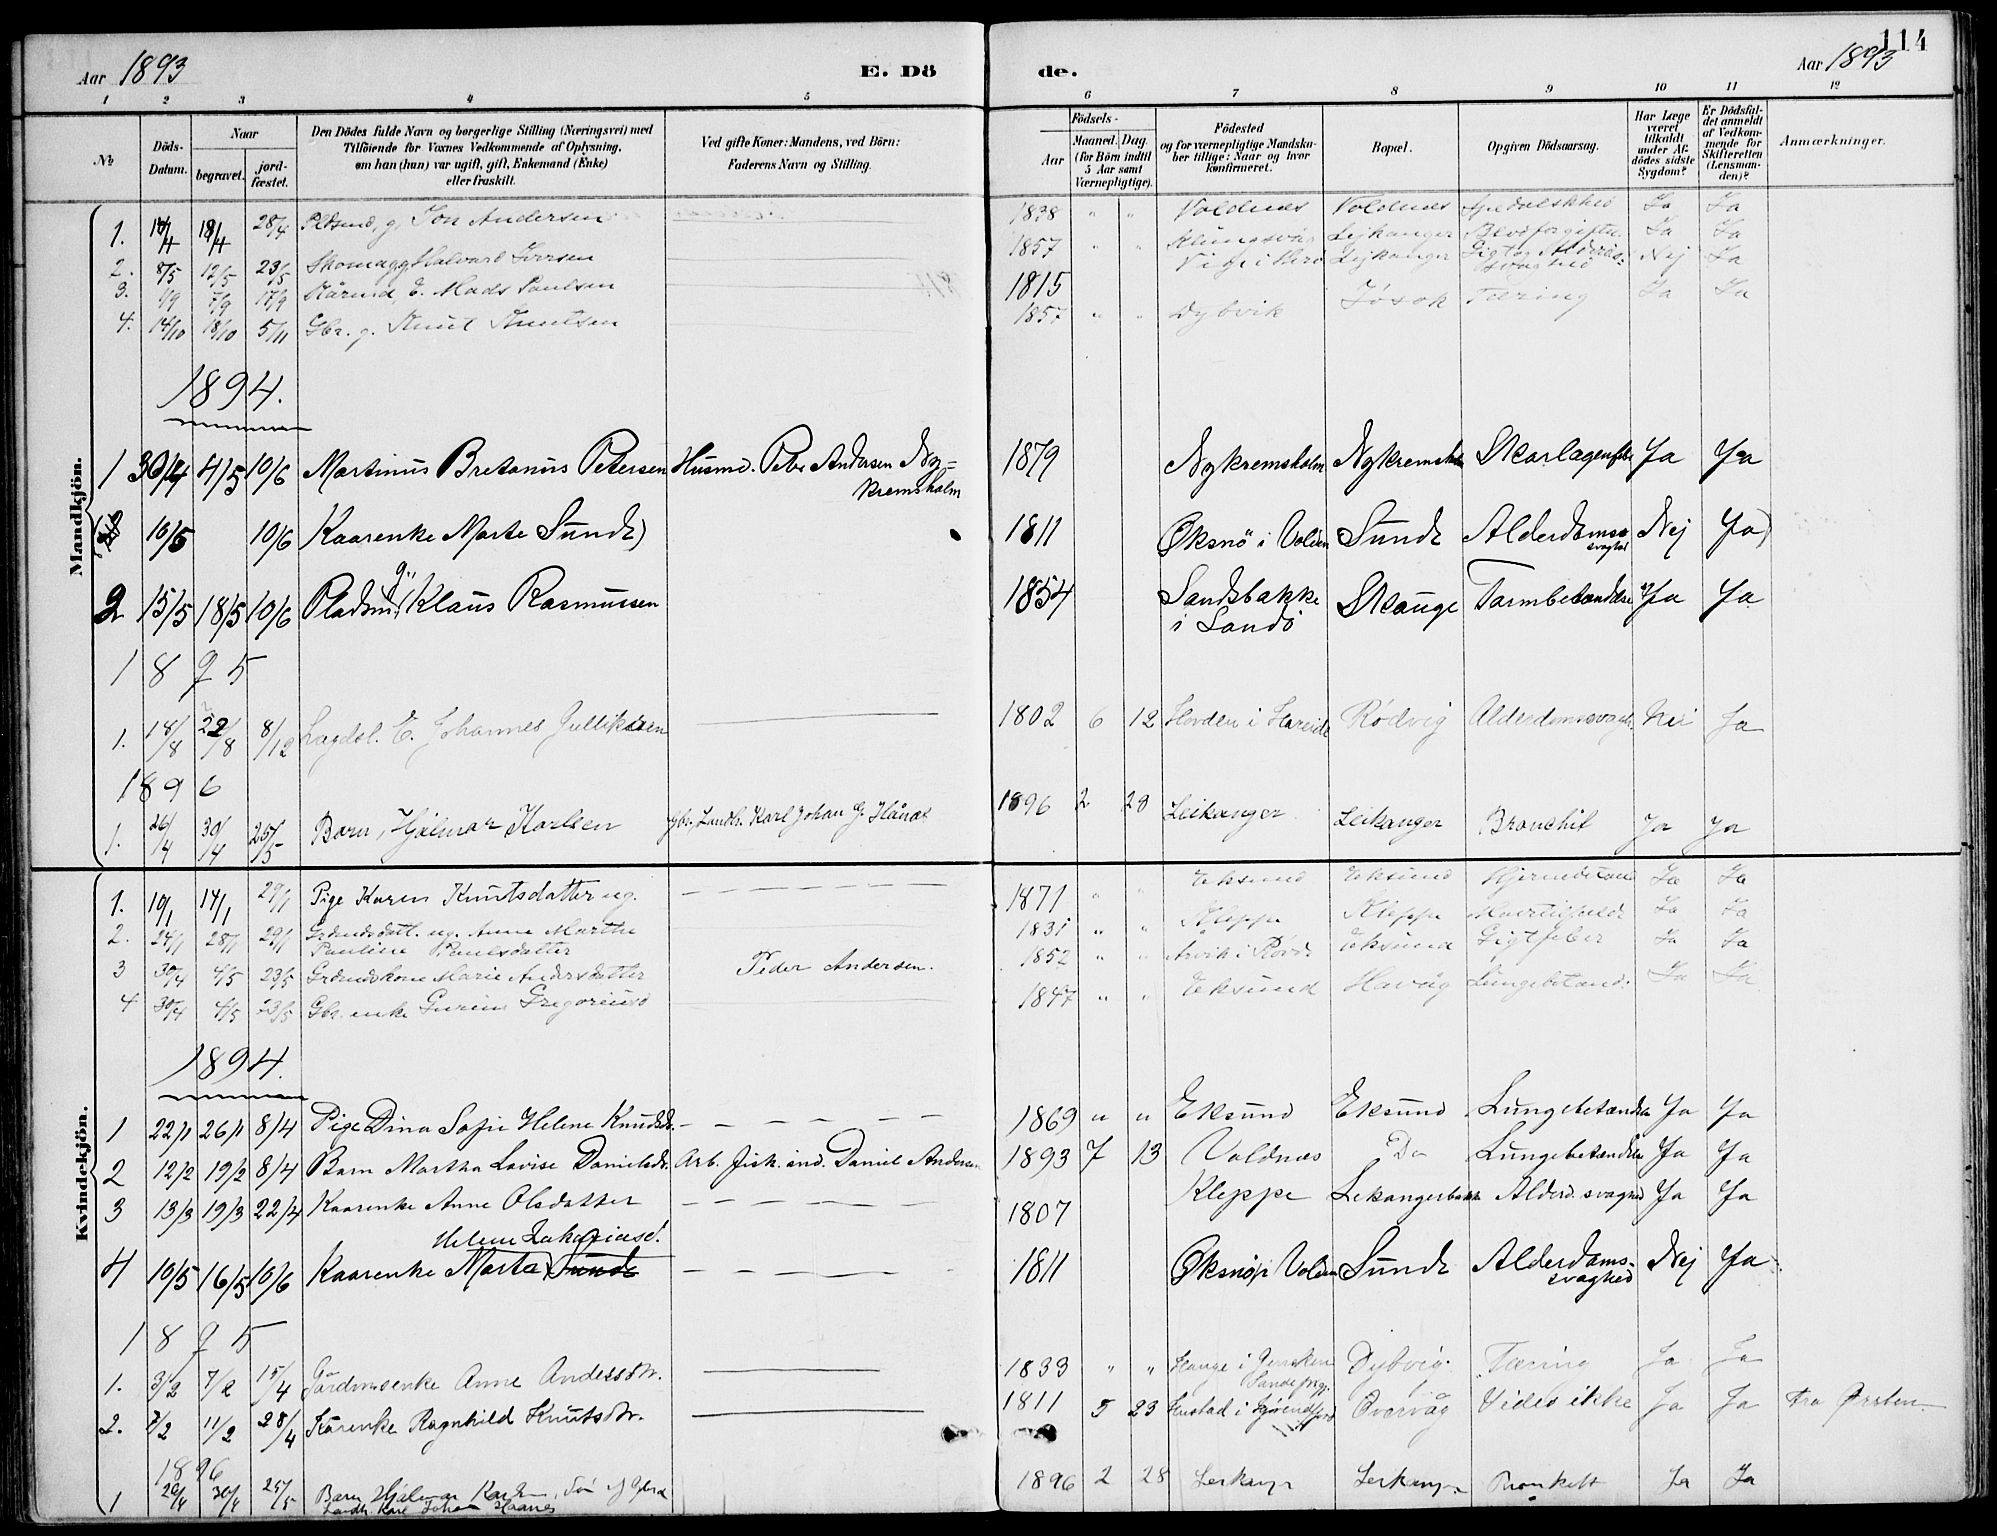 114
Aar 1893
E. Dö
de.
Aar 1893
1 2 3 4 5 6 7 8 9 10 11 12
No
Döds-Datum.
Naar
begravet.
jordfæstet.
Den Dödes fulde Navn og borgerlige Stilling (Næringsvei) med
Tilföiende for Voxnes Vedkommende af Oplysning,
om han (hun) var ugift, gift, Enkemand (Enke)
eller fraskilt.
Ved gifte Koner: Mandens, ved Börn:
Faderens Navn og Stilling.
Födsels-
Aar
Maaned. Dag.
(for Börn indtil
5 Aar samt
Værnepligtige).
Födested
og for værnepligtige Mandskaber tillige: Naar og hvor
konfirmeret.
Bopæl.
Opgiven Dödsaarsag.
Har Læge
været
tilkaldt
under Afdödes sidste
Sygdom?
Er Dödsfaldet anmeldt
af Vedkommende for
Skifteretten
(Lensmanden)?
Anmærkninger.
Mandkjön.
1. 18/4 28/4 Jon Andersen 1838 " " Voldnæs Voldnæs Spedalskhed Ja Ja
2. 8/5 12/5 23/5 Halvard Iversen 1857 " " Lejkanger Blodforgiftn. Ja Ja
3. 7/9 17/9 Kårmd. E. Mads Paulsen 1815 Lejkanger Nej Ja
4. 14/10 18/10 5/11 Gbr. g. Knut Knutsen 1857 " " Dybvik Jøsok Tæring Ja Ja
1894.
1 30/4 4/5 10/6 Martinus Bretanus Petersen Husmd. Peder Andersen Nykremsholm 1879 Nykremsholm Nykremsholm Skarlagensfeber Ja Ja
10/5 10/6 Kaarenke Marte Sunde) 1811 Øksnö i Volden Sunde Alderdomssvaghed Nej Ja)
2 15/5 18/5 10/6 Pladsmd. g. Klaus Rasmussen 1854 Sandsbakke i Sandö Skauge Tarmbetændelse Ja Ja
1895
1. 18/8 22/8 8/12 Lægdsl. E. Johannes Gulliksen 1802 6 12 Hovden i Hareide Rødvig Alderdomssvagh. Nei Ja
1896
1. 26/4 30/4 25/5 Barn, Hjalmar Karlsen Gbr. Landh. Karl Johan G. Hånæs 1896 2 28 Leikanger Leikanger Bronchit Ja Ja
Kvindekjön.
1. 10/1 14/1 29/1 Pige Karen Knutsdatter ug. 1871 " " Eksund Eksund Ja Ja
2. 24/1 28/1 29/1 Grdmdsdatt. ug. Anne Marthe Pauline Paulsdatter 1831 " " Kleppe Kleppe Ja Ja
3 30/4 4/5 23/5 Grdmdskone Marie Andersdatter Peder Andersen. 1852 " " Eksund Gigtfeber Ja Ja
4 30/4 4/5 23/5 Gbr. enke Gurine Gregoriusd 1847 " " Eksund Havåg Lungebetænd. Ja Ja
1894.
1 22/1 26/1 8/4 Pige Dina Sofie Helene Knudsd. 1869 " " Eksund Eksund Lungebetændelse Ja Ja
2 12/2 19/2 8/4 Barn Martha Lovise Danielsd. Arb. fisk. ind. Daniel Andersen 1893 7 13 Voldnæs Do Lungebetændelse Ja Ja
3 13/3 19/3 22/4 Kaarenke Anne Olsdatter 1807 Kleppe Lekangerbakk Alderd. svaghed Ja Ja
4 10/5 16/5 10/6 Kaarenke Marte Helene Zakariasd. Sunde 1811 Øksnø i Volden Sunde Alderdomssvaghed Nej Ja
1895
1. 3/2 7/2 15/4 Gårdmsenke Anne Andersdtr. 1833 " " Hauge i Gursken Sande prgj. Dybvig Tæring Ja Ja
2. 7/2 11/2 28/4 Kårenke Ragnhild Knutsdtr. 1811 5 23 Hustad i Hjørendfjord Overvåg Vides ikke Ja Ja Fra Ørsten
1896
1 26/4 30/4 25/5 Barn Hjalmar Karlsen, Søn af Gbr. Landh. Karl Johan Haanes 1896 2 28 Leikanger Leikanger Bronkitt Ja Ja